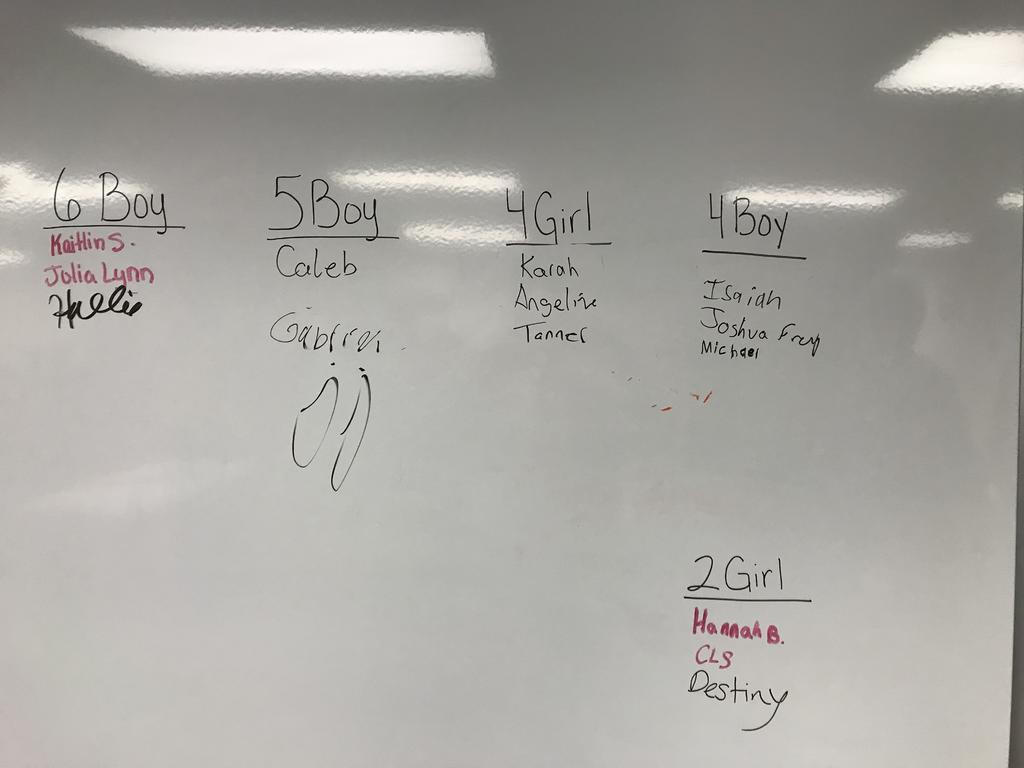 6 Boy
Kaitlin S.
Jolia Lynn
Hallie
5 Boy
Caleb
Gabriel
JJ
4 Girl
Karah
Angeline
Tanner
4 Boy
Isaiah
Joshua Frey
Michael
2 Girl
Hannah B.
CLS
Destiny